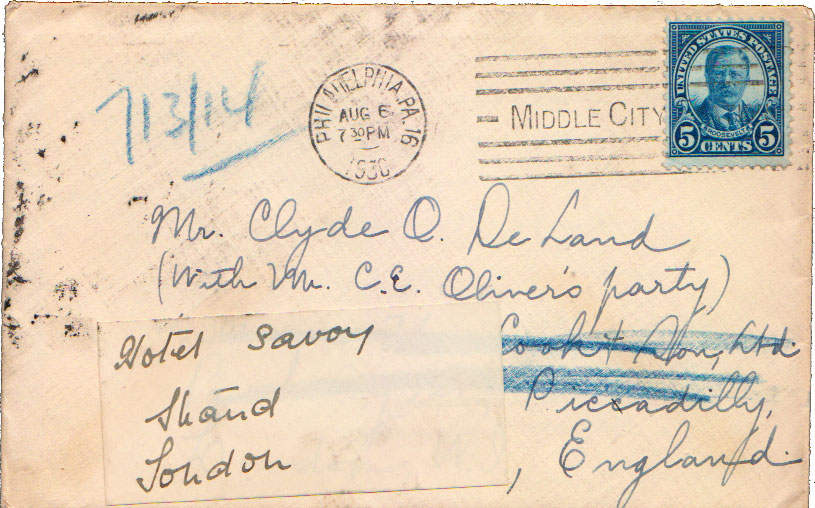 713/14
PHILADELPHIA, PA. 16
AUG 6
7 30 PM
1930
MIDDLE CITY
UNITED STATES POSTAGE
ROOSEVELT
5 CENTS 5
Mr. Clyde O. De Land
(With Mr. C.E. Oliver's party)
Cook & Son, Ltd.
Piccadilly,
, England.
Hotel Savoy
Strand
London